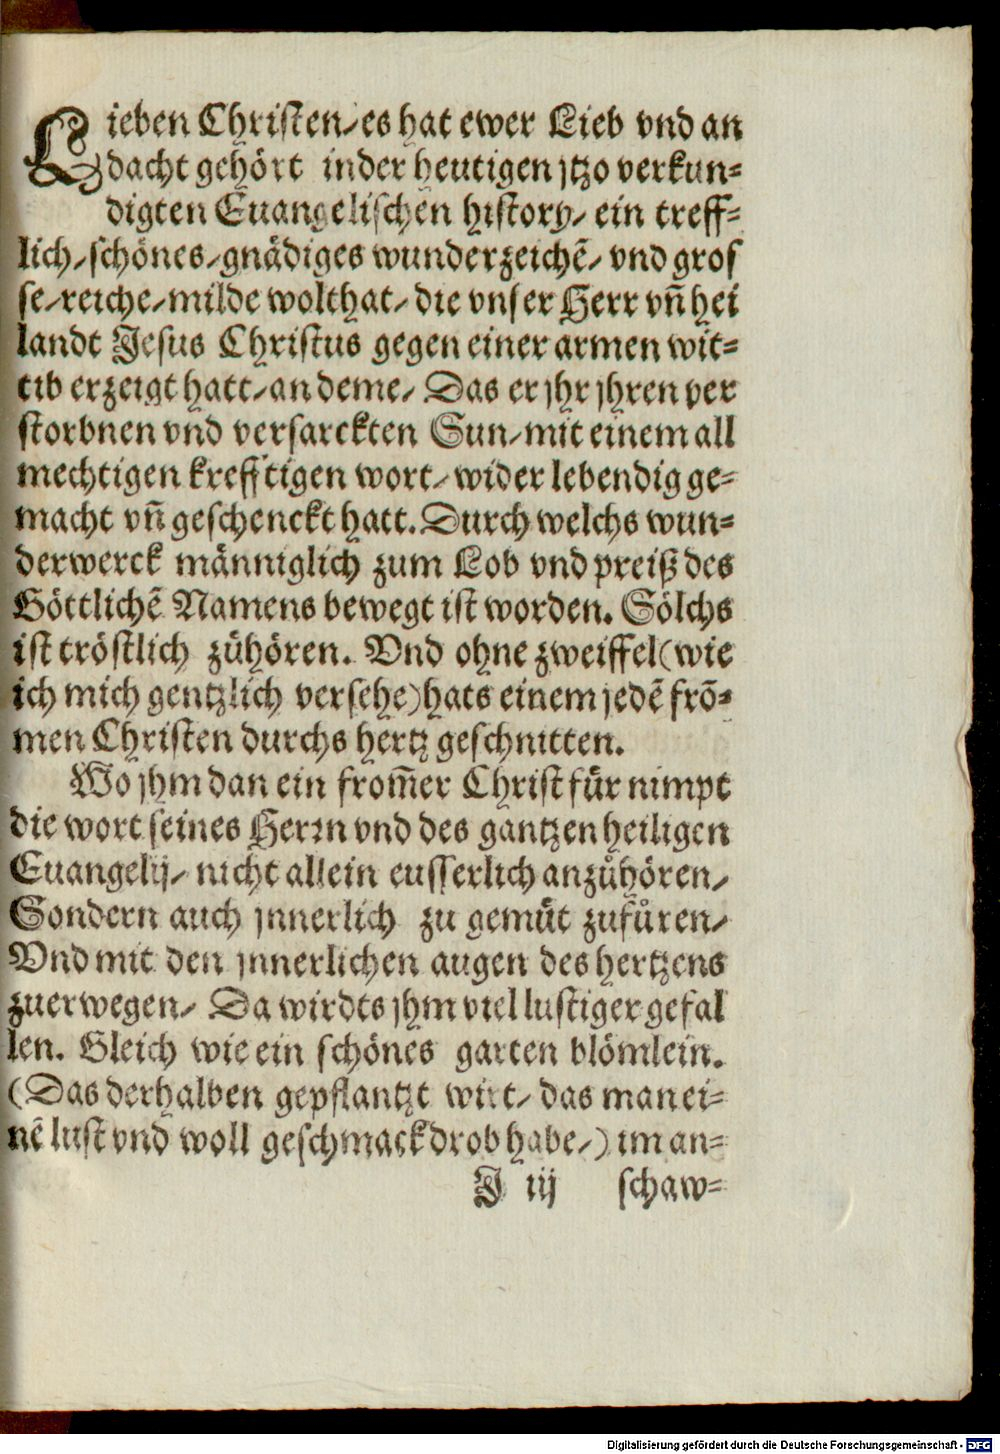 Lieben Christen/ es hat ewer Lieb vnd an
dacht gehört in der heutigen jtzo verkun⸗
digten Euangelischen history/ ein treff⸗
lich/ schönes/ gnädiges wunderzeichē/ vnd gros
se/ reiche/ milde wolthat/ die vnser Herr vñ hei
landt Jesus Christus gegen einer armen wit⸗
tib erzeigt hatt/ an deme/ Das er jhr jhren ver
storbnen vnd versarckten Sun/ mit einem all
mechtigen krefftigen wort/ wider lebendig ge⸗
macht vñ geschenckt hatt. Durch welchs wun⸗
derwerck männiglich zum Lob vnd preiß des
Göttlichē Namens bewegt ist worden. Sölchs
ist tröstlich zůhören. Vnd ohne zweiffel (wie
ich mich gentzlich versehe) hats einem jedē frō⸗
men Christen durchs hertz geschnitten.
Wo jhm dan ein from̃er Christ für nimpt
die wort seines Herrn vnd des gantzen heiligen
Euangelij/ nicht allein eusserlich anzůhören/
Sondern auch jnnerlich zu gemüt zufüren/
Vnd mit den jnnerlichen augen des hertzens
zuerwegen/ Da wirdts jhm viel lustiger gefal
len. Gleich wie ein schönes garten blömlein.
(Das derhalben gepflantzt wirt/ das man ei⸗
nē lust vnd woll geschmack drob habe/) im an⸗
J iij schaw⸗
Digitalisierung gefördert durch die Deutsche Forschungsgemeinschaft - DFG